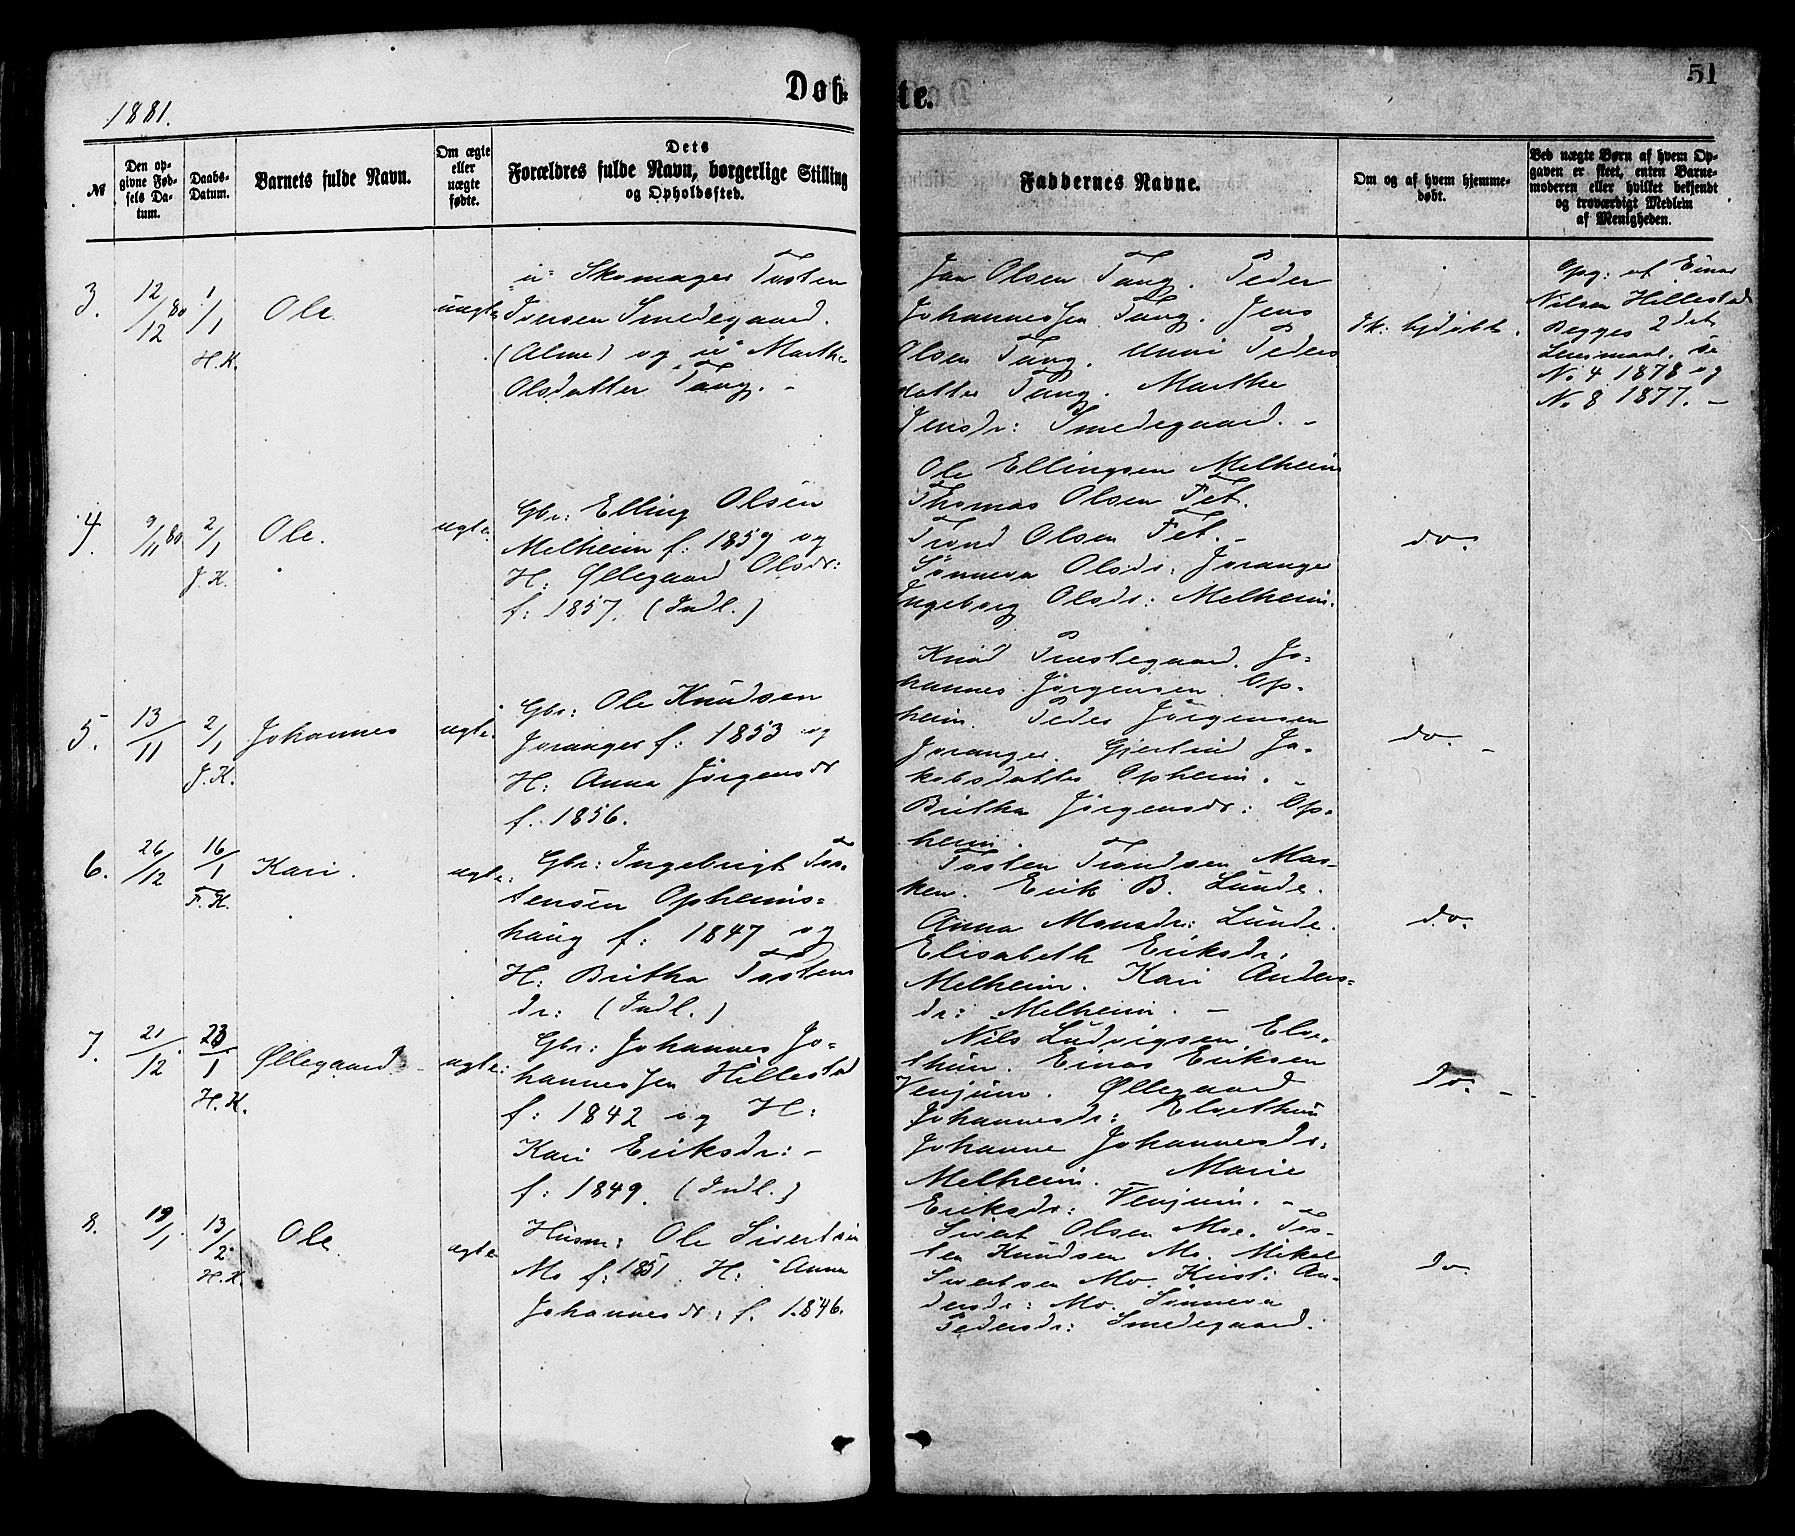 Døb:
te.
51
1881.
№
Den op-
givne Fød-
sels Da-
tum.
Daabs-
Datum.
Barnets fulde Navn.
Om ægte
eller
uægte
fødte.
Dets
Forældres fulde Navn, borgerlige Stilling
og Opholdssted.
Faddernes Navne.
Om og af hvem hjemme-
døbt.
Ved uægte Børn af hvem Op-
gaven er skeet, enten Barne-
moderen eller hvilket bekjendt
og troværdigt Medlem
af Menigheden.
3.
12/12 80
1/1
H.K.
Ole
uægte
u: Skomager Tosten
Iversen Smedegaard.
(Alme) og u: Marthe
Olsdatter Tang. -
Jan Olsen Tang. Peder
Johannessen Tang. Jens
Olsen Tang. Unni Peders
datter Tang. Marthe
Jensdr: Smedegaard. -
Ik: hjdøbt.
Opg: af Einar
Nilsen Hillestad
Begges 2det
Leiermaal. se
No 4 1878 og
No 8 1877. -
4.
9/11 80
2/1
J.K.
Ole.
ægte
Gbr: Elling Olsen
Melheim f: 1859 og
H: Øllegaard Olsdr:
f: 1857. (Indl.)
Ole Ellingsen Melheim
Thomas Olsen Fet.
Trond Olsen Fet. -
Sönneva Olsdr: Joranger
Ingeborg Olsdr: Melheim.
do.
5.
13/11
2/1
J.K.
Johannes
ægte.
Gbr: Ole Knudsen
Joranger f: 1853 og
H: Anna Jörgensdr
f: 1856.
Knud Prestegaard. Jo-
hannes Jørgensen Op-
heim. Peder Jörgensen
Joranger. Gjertrud Ja-
kobsdatter Opheim. -
Britha Jörgensdr: Op-
heim.
do. -
6.
26/12
16/1
F.K.
Kari.
ægte.
Gbr: Ingebrigt Tos-
tensen Opheims-
haug f: 1847 og
H: Britha Tostens
dr: (Indl.)
Tosten Trondsen Mar-
ken. Erik B. Lunde.
Anna Monsdr: Lunde.
Elisabeth Eriksdr.
Melheim. Kari Anders-
dr: Melheim. -
do.
7.
21/12
23/1
H.K.
Øllegaard
ægte
Gbr: Johannes Jo-
hannessen Hillestad
f: 1842 og H:
Kari Eriksdr: -
f: 1849. (Indl.)
Nils Ludvigsen Elve-
thun. Einar Eriksen
Venjum. Øllegaard
Johannesdr: Elvethun
Johanne Johannesdr:
Melheim. Marie
Eriksdr: Venjum. -
do. -
8.
19/1
13/2
H.K.
Ole
ægte
Husm: Ole Sivertsen
Mo f: 1851. H: Anna
Johannesdr: f. 1846.
Sivert Olsen Moe. Tos-
ten Knudsen Mo. Mikal
Sivertsen Mo. Kristi An-
dersdr: Mo. Sönneva
Pedersdr: Smedegaard.
do.